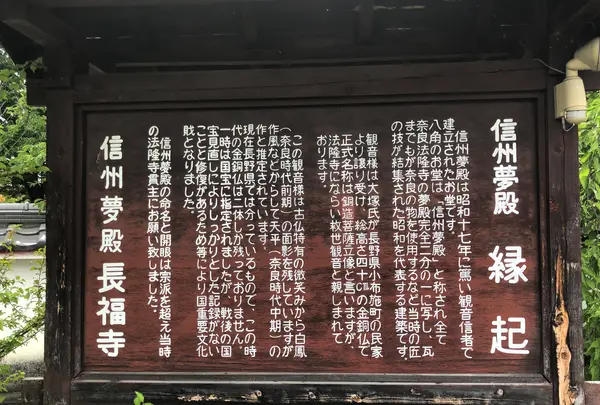 信州夢殿 縁起
信州夢殿は昭和十七年に篤い観音信者で
建立されたお堂です。
八角のお堂は「信州夢殿」と称され全て
奈良法隆寺の夢殿完全二分の一に写し、瓦
までもが奈良の物を使用するなど当時の匠
の技が結集された昭和を代表する建築です。
観音様は大塚氏が長野県小布施町の民家
より譲り受け 総高さ四十㎝の金銅仏で
正式名称は銅造菩薩立像と言いますが、
法隆寺にならい救世観音と親しまれて
おります。
この観音様は古仏特有の微笑みから白鳳
(奈良時代前期)の面影を残していますが
作風などからして天平(奈良時代中期)の
作と推定されています。
現在長野県では分っているもので、この時
代の金銅仏は二体しか残っておりません。
一時は国宝に指定されましたが、戦後の国
宝見直しによりしっかりとした記録がない
ことと修復があるため等により国重要文化
財となりました。
信州夢殿の命名と開眼は宗派を超え当時
の法隆寺貫主にお願い致しました。
信州夢殿 長福寺